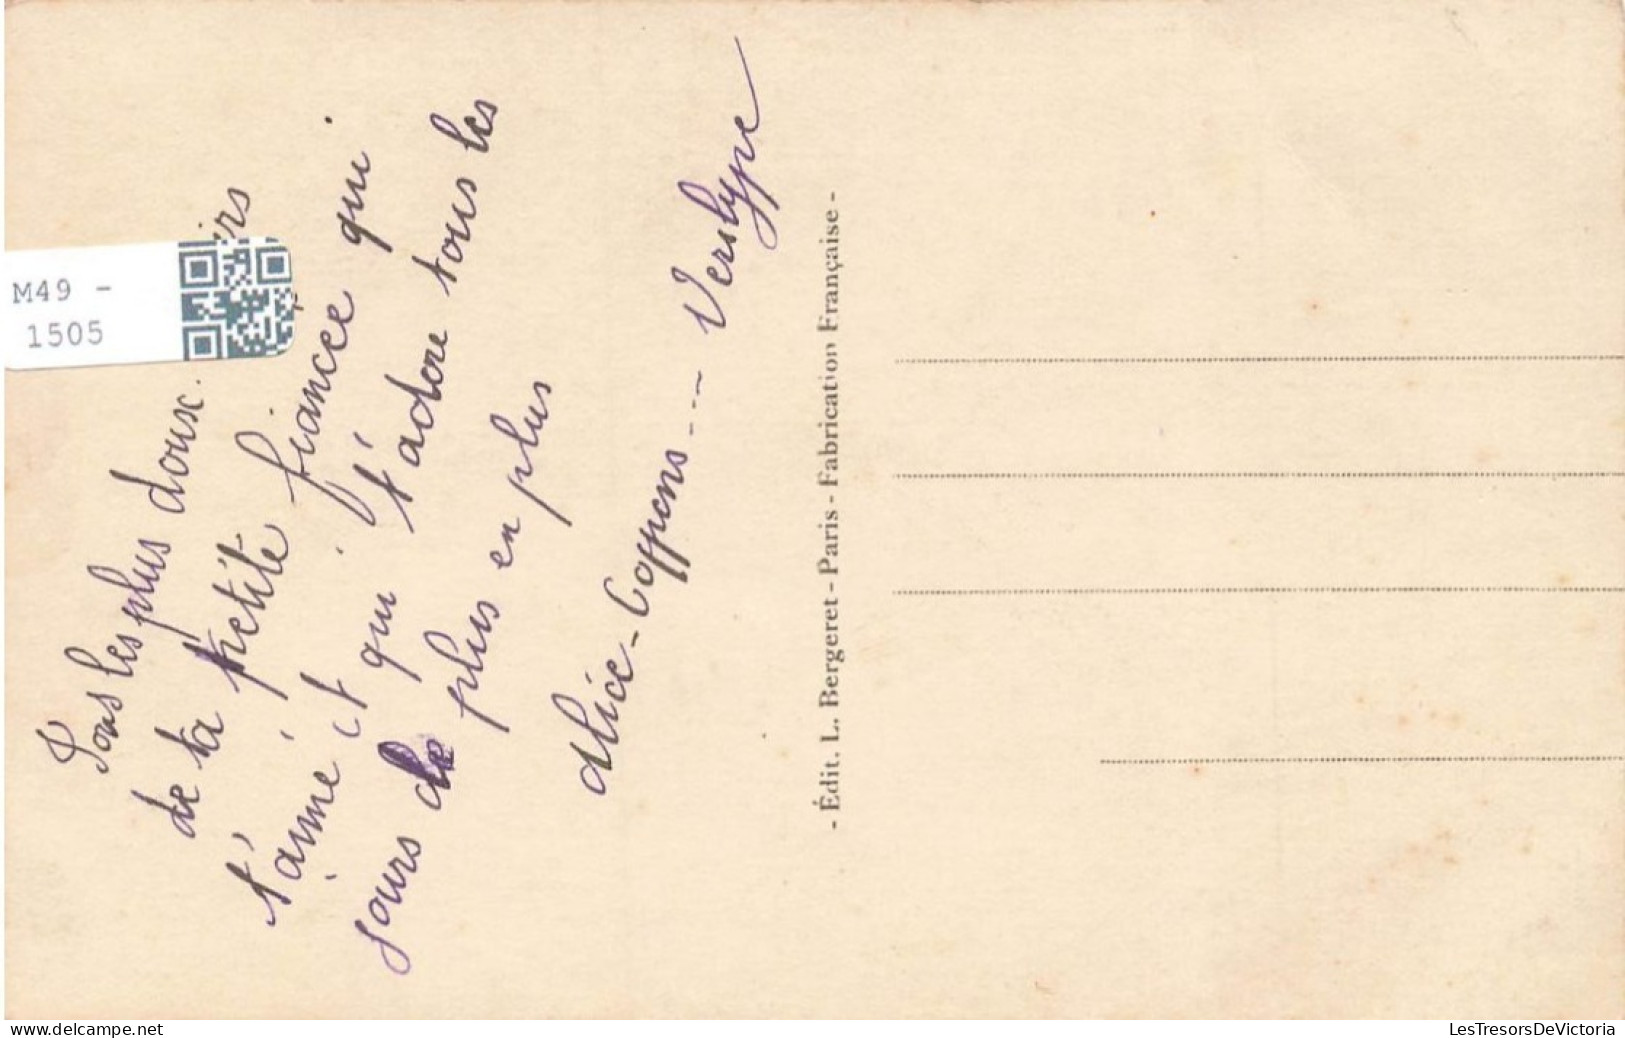 Tous les plus doux
de ta petite fiancée qui
t'aime et qui t'adore tous les
jours de plus en plus
Alice-Coppens --- Verslype
- Édit. L. Bergeret - Paris - Fabrication Française -
M49 -
1505
www.delcampe.net
LesTresorsDeVictoria